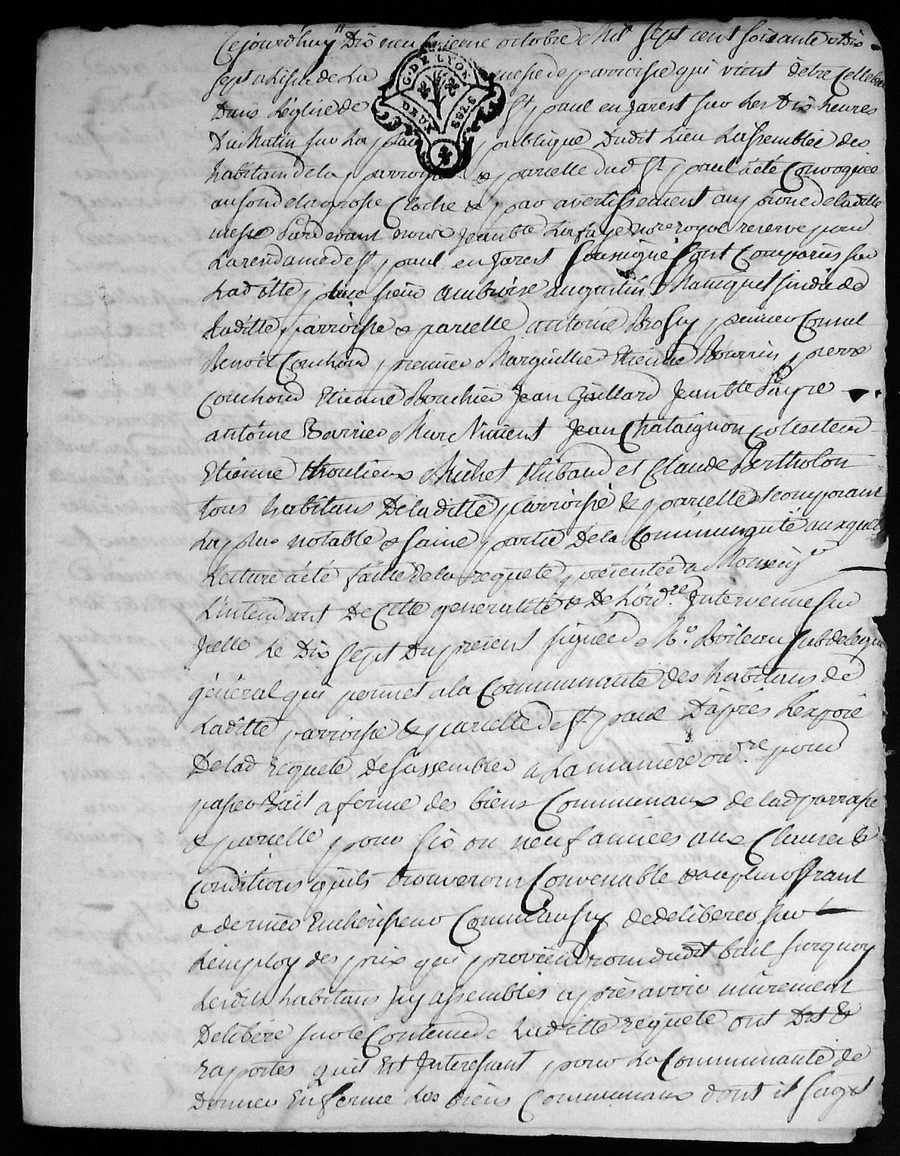 Cejourdhuy Dix neufvieme octobre Mil sept cent soixante dix
sept a l'issue de La messe de parroisse qui vient detre Cellebrée
Dans L'eglise de St paul en Jarest sur Les Dix heures
G. DE LYON
DEUX
Du Matin sur La place publique Dudit Lieu L'assemblée des
habitans de la parroisse & parcelle dud st paul a été Convoquée
au son de la grosse Cloche & par avertissement au prone de laditte
messe Pardevant nous Jean Bte Lafaye nore royal reservé pour
La rendamed st paul en Jarest soussigné sont Comparus sur
Laditte place sieur ambroise augustin sindic de
Laditte parroisse & parcelle antoine premier Consul
Benoit Couchoud premier Marguillier Etienne Bourrin pierre
Couchoud Etienne Bouchier Jean Gaillard Jean Bte payre
antoine Barrier Marc Vincent Jean Chataignon Collecteur
Etienne Michel Thibaud et Claude Bertholon
tous habitans De laditte parroisse & parcelle & composant
La plus notable & saine partie De la Communauté auxquels
Lecture a été faitte de la requete présentée a Monseigr
L'intendant de Cette generalité & de L'ordre Intervenue sur
Icelle Le Dix sept Du present signée Mr Boileau subdelegué
général qui permet a la Communauté des habitans de
Laditte parroisse & parcelle de st paul D'après L'exposé
De lad requete de s'assembler a La maniere ordre pour
passer Bail a ferme des biens Communaux de lad parroisse
& parcelle pour six ou neuf années aux Clauses &
Conditions quils trouveront Convenable & au plus offrant
& dernier Encherisseur Comme aussy de deliberer sur
L'employ des prix qui proviendront dudit bail surquoy
Lesdits habitans Icy assemblés après avoir mûrement
Délibéré sur le Contenu de Laditte requete ont Dit &
raportés quil Est Interessant pour La Communauté de
Donner En ferme Les biens Communaux dont il sagit